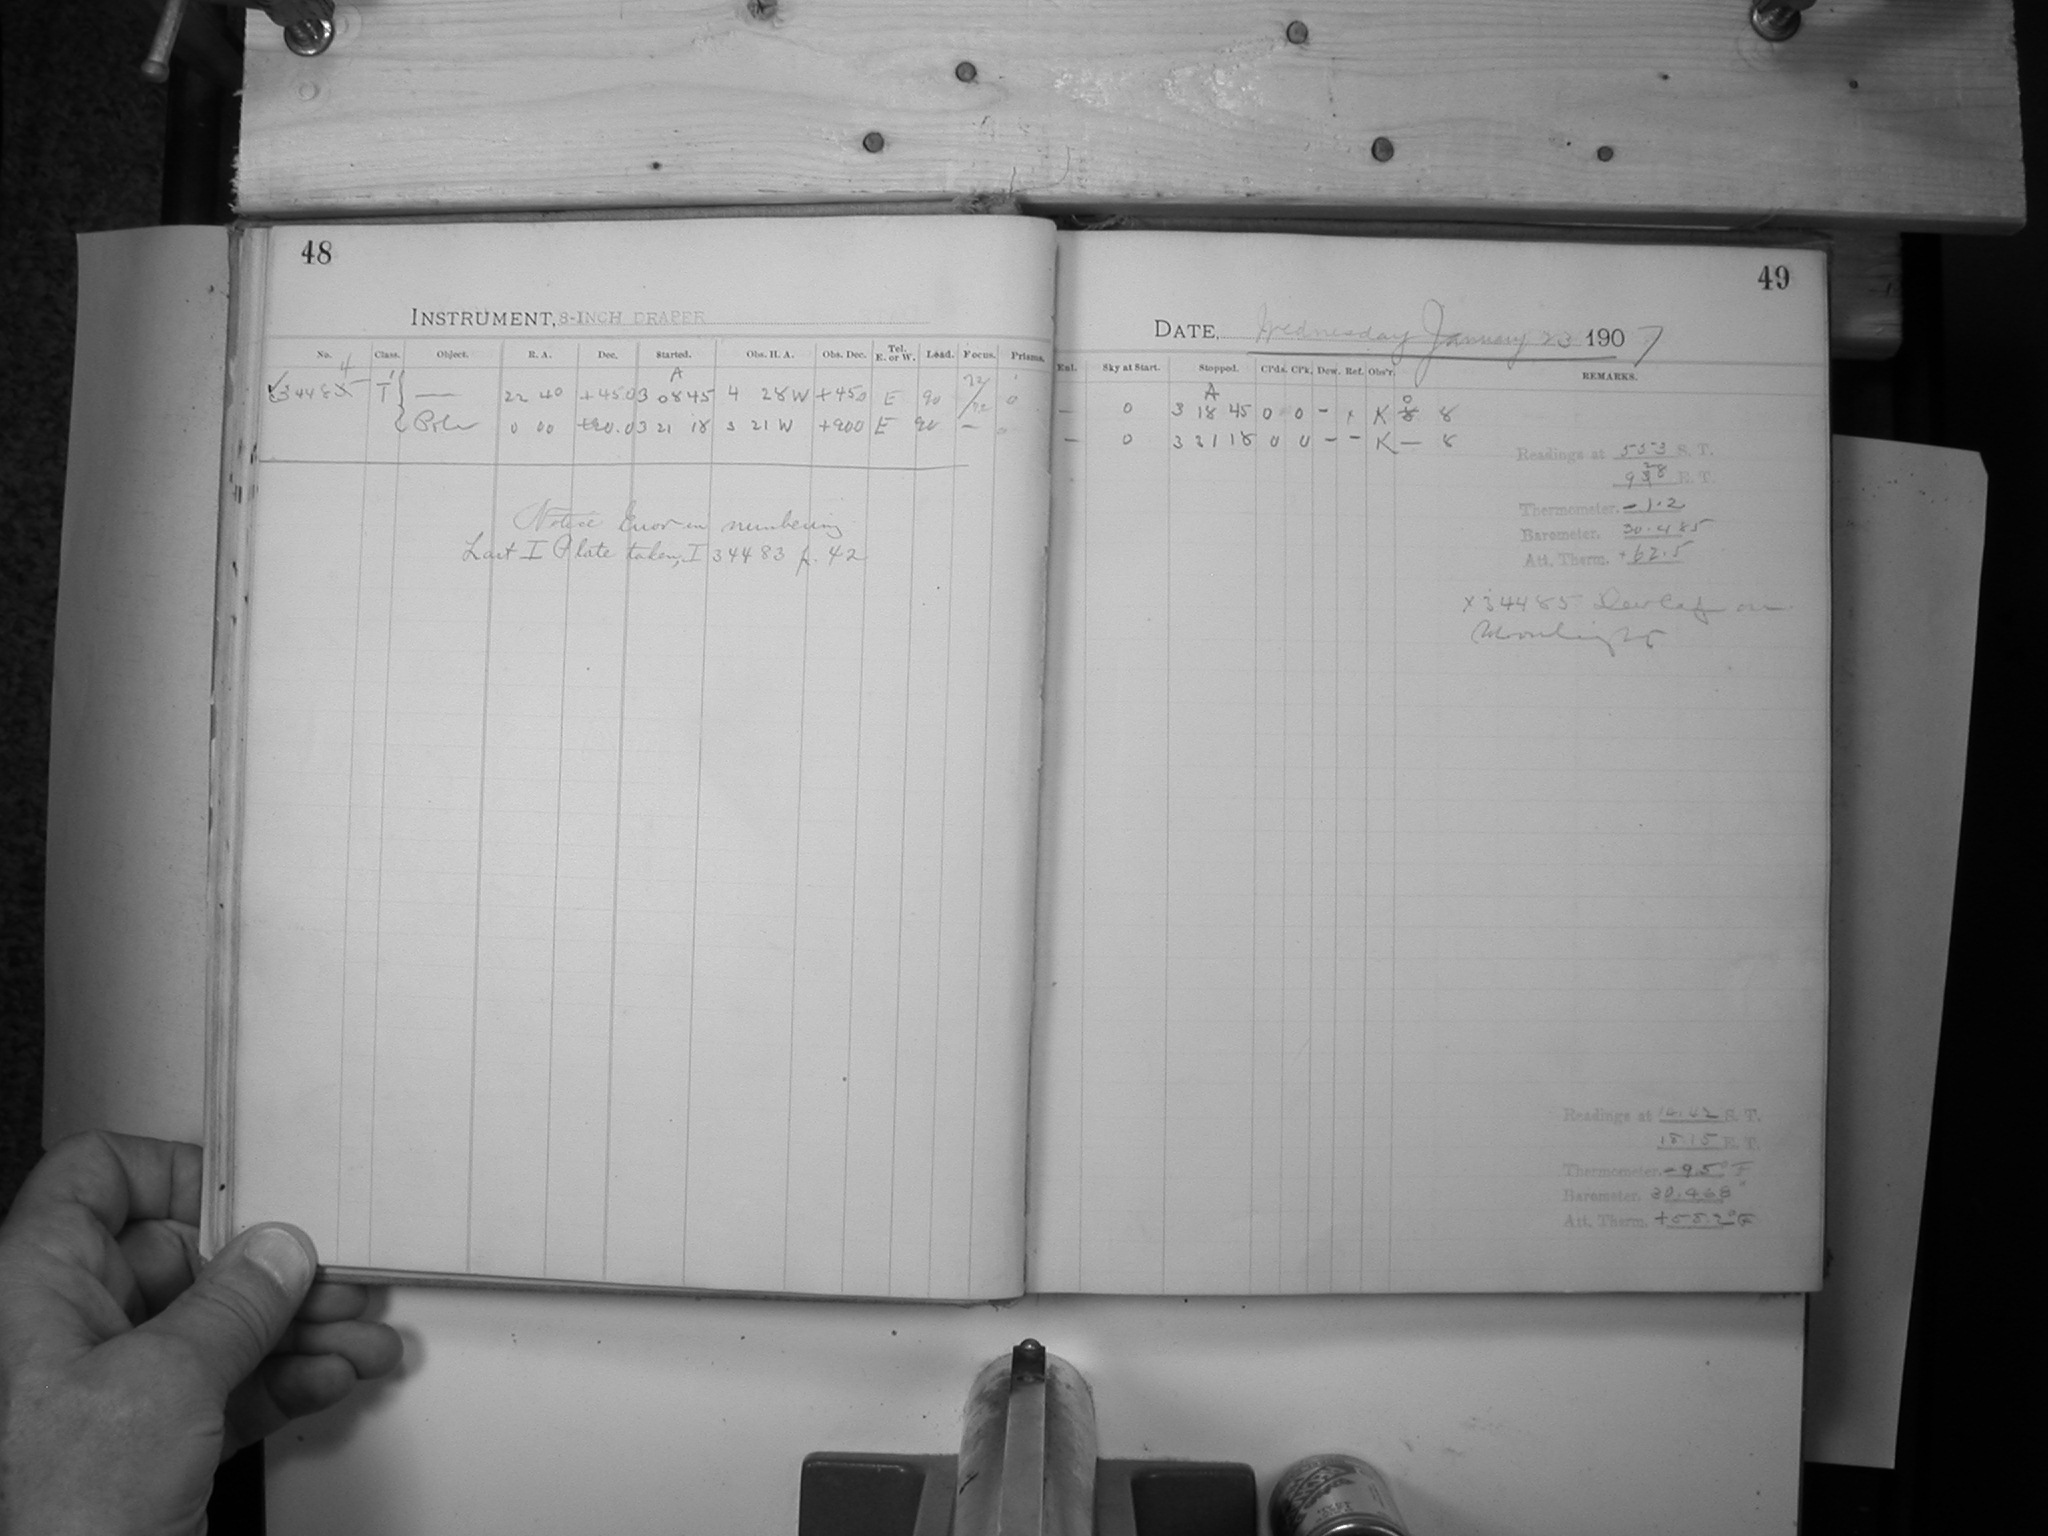 48
INSTRUMENT, 8-INCH DRAPER
No. Class. Object. R. A. Dec. Started. Obs. H. A. Obs. Dec. Tel. E. or W. Load. Focus. Prisms.
4
A
34485 T — 22 40 +45.0 3 08 45 4 28 W +45.0 E 90 72/72 0
Pole 0 00 +90.0 3 21 18 3 21 W +90.0 E 90 — 0
Notice Error in numbering
Last I Plate taken, I 34483 p. 42
49
DATE, Wednesday January 23 1907
Enl. Sky at Start. Stopped. Cl'ds. Cl'k. Dew. Ref. Obs'r. REMARKS.
A
— 0 3 18 45 0 0 – x K 8 8
0
— 0 3 21 18 0 0 – – K — 8
Readings at 553 S. T.
E. T.
Thermometer. -1.2
Barometer. 30.485
Att. Therm. +62.5
x 34485 Dew Cap on
Moonlight
Readings at 14.42 S. T.
18 15 E. T.
Thermometer. -9.5° F
Barometer. 30.468"
Att. Therm. +55.2° F